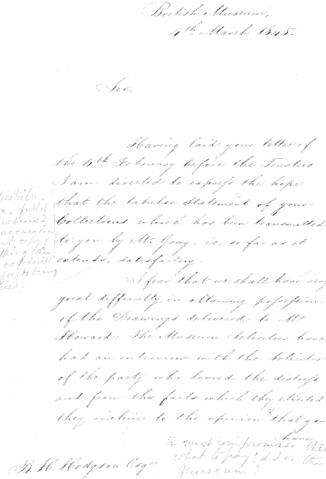 British Museum,
4th March 1845.
Sir,
Having laid your letter of
the 4th February before the Trustees
I am directed to express the hope
that the tabular statement of your
Collections which has been transmitted
to you by Mr Gray, is, so far as it
extends, satisfactory.
I fear that we shall have very
great difficulty in obtaining possession
of the Drawings delivered to Mr
Howard. The Museum Solicitors have
had an interview with the Solicitor
of the party who issued the distress
and from the facts which they elicited
they incline to the opinion that you
have
& must compromise
what to pay? I or the
Museum?
B. H. Hodgson Esqre